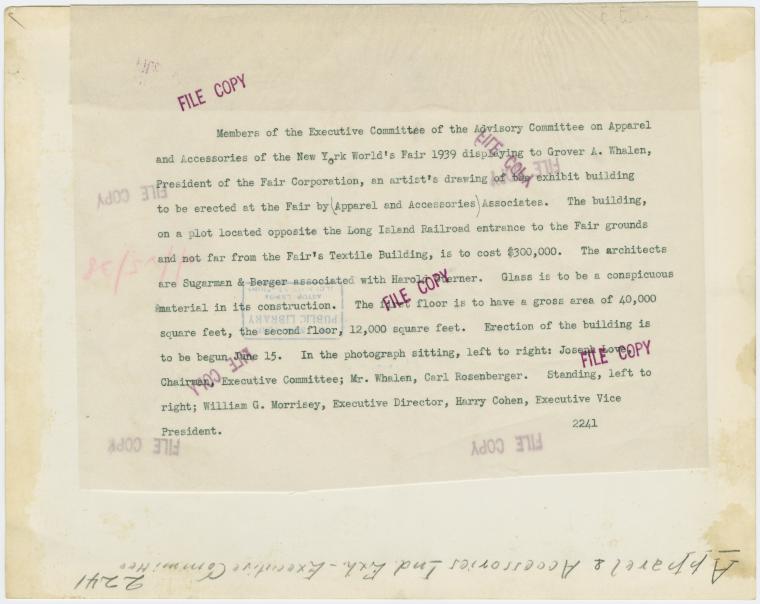 FILE COPY
Members of the Executive Committee of the Advisory Committee on Apparel
and Accessories of the New York World's Fair 1939 displaying to Grover A. Whalen,
FILE COPY
President of the Fair Corporation, an artist's drawing of the exhibit building
FILE COPY
FILE COPY
to be erected at the Fair by (Apparel and Accessories) Associates. The building,
on a plot located opposite the Long Island Railroad entrance to the Fair grounds
and not far from the Fair's Textile Building, is to cost $300,000. The architects
are Sugarman & Berger associated with Harold Sterner. Glass is to be a conspicuous
FILE COPY
material in its construction. The first floor is to have a gross area of 40,000
PUBLIC LIBRARY
square feet, the second floor, 12,000 square feet. Erection of the building is
to be begun June 15. In the photograph sitting, left to right: Joseph Love,
FILE COPY
FILE COPY
Chairman, Executive Committee; Mr. Whalen, Carl Rosenberger. Standing, left to
right; William G. Morrisey, Executive Director, Harry Cohen, Executive Vice
President. 2241
FILE COPY
FILE COPY
Apparel & Accessories Ind. Exh. - Executive Committee
2241